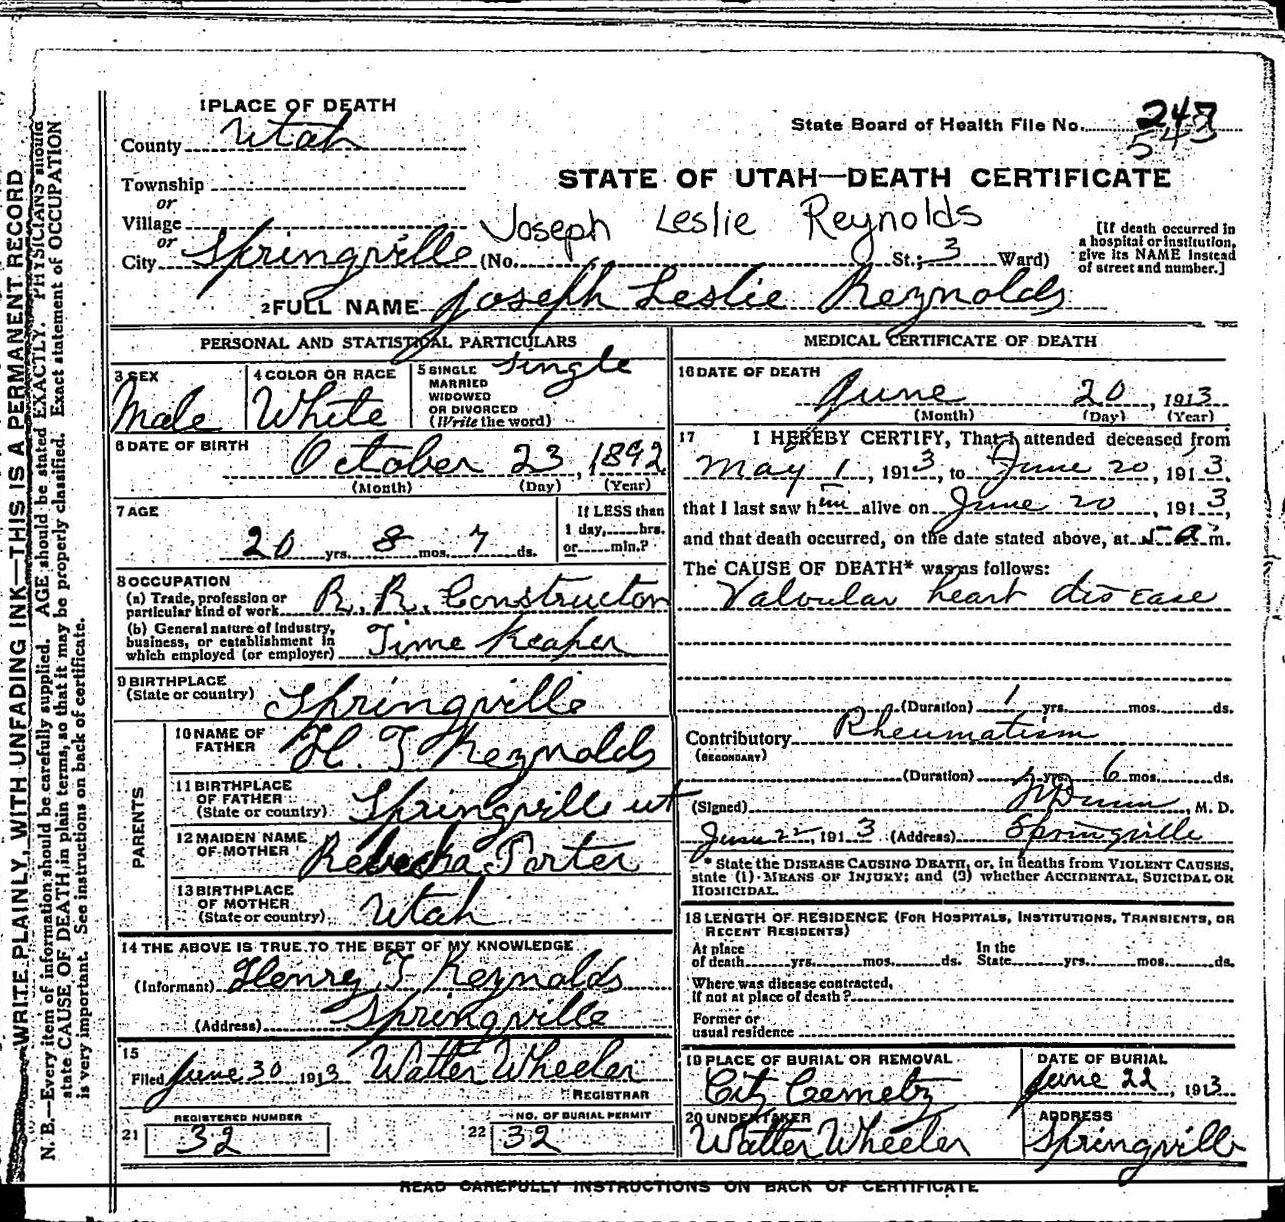 1 PLACE OF DEATH
County Utah
State Board of Health File No. 247
543
Township
or
STATE OF UTAH—DEATH CERTIFICATE
Village
or
Joseph Leslie Reynolds
City Springville (No. St.; 3 Ward)
[If death occurred in
a hospital or institution,
give its NAME instead
of street and number.]
2 FULL NAME Joseph Leslie Reynolds
PERSONAL AND STATISTICAL PARTICULARS
3 SEX
Male
4 COLOR OR RACE
White
5 SINGLE
MARRIED
WIDOWED
OR DIVORCED
(Write the word)
Single
6 DATE OF BIRTH
October 23, 1892
(Month) (Day) (Year)
7 AGE
20 yrs. 8 mos. 7 ds.
If LESS than
1 day, hrs.
or min.?
8 OCCUPATION
(a) Trade, profession or
particular kind of work R. R. Construction
(b) General nature of industry,
business, or establishment in
which employed (or employer) Time Keaper
9 BIRTHPLACE
(State or country) Springville
PARENTS
10 NAME OF
FATHER H. T Reynolds
11 BIRTHPLACE
OF FATHER
(State or country) Springville ut
12 MAIDEN NAME
OF MOTHER Rebecka Porter
13 BIRTHPLACE
OF MOTHER
(State or country) Utah
14 THE ABOVE IS TRUE TO THE BEST OF MY KNOWLEDGE
(Informant) Henry T Reynolds
(Address) Springville
15
Filed June 30 1913 Walter Wheeler
REGISTRAR
REGISTERED NUMBER
21 32
NO. OF BURIAL PERMIT
22 32
MEDICAL CERTIFICATE OF DEATH
16 DATE OF DEATH
June 20, 1913
(Month) (Day) (Year)
17 I HEREBY CERTIFY, That I attended deceased from
May 1, 1913, to June 20, 1913.
that I last saw him alive on June 20, 1913,
and that death occurred, on the date stated above, at 5 a m.
The CAUSE OF DEATH* was as follows:
Valvular heart disease
(Duration) 1 yrs. mos. ds.
Contributory Rheumatism
(SECONDARY)
(Duration) yrs. 6 mos. ds.
(Signed) M. D.
June 22, 1913 (Address) Springville
* State the DISEASE CAUSING DEATH, or, in deaths from VIOLENT CAUSES,
state (1) MEANS OF INJURY; and (2) whether ACCIDENTAL, SUICIDAL OR
HOMICIDAL.
18 LENGTH OF RESIDENCE (FOR HOSPITALS, INSTITUTIONS, TRANSIENTS, OR
RECENT RESIDENTS)
At place
of death yrs. mos. ds.
In the
State yrs. mos. ds.
Where was disease contracted,
if not at place of death?
Former or
usual residence
19 PLACE OF BURIAL OR REMOVAL
City Cemetry
DATE OF BURIAL
June 22, 1913
20 UNDERTAKER
Walter Wheeler
ADDRESS
Springville
READ CAREFULLY INSTRUCTIONS ON BACK OF CERTIFICATE
WRITE PLAINLY, WITH UNFADING INK—THIS IS A PERMANENT RECORD
N. B.—Every item of information should be carefully supplied. AGE should be stated EXACTLY. PHYSICIANS should
state CAUSE OF DEATH in plain terms, so that it may be properly classified. Exact statement of OCCUPATION
is very important. See instructions on back of certificate.